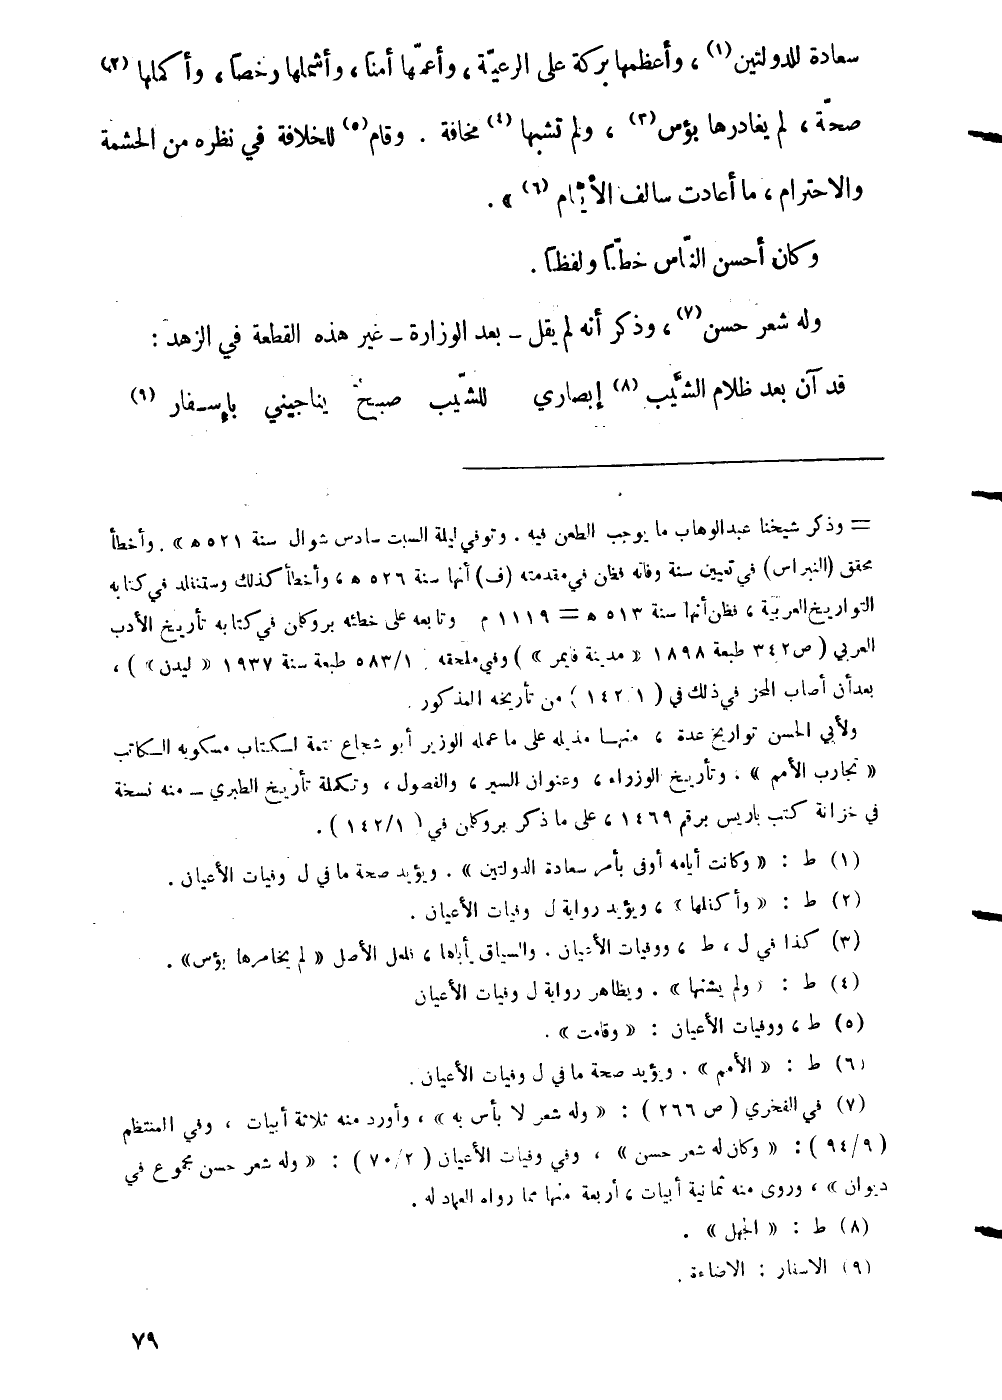 سعادة للدولتين (١) ، وأعظمها بركة على الرعيّة ، وأعمّها أمناً ، وأشملها رخصاً ، وأكملها (٢)
صحّة ، لم يغادرها بؤس (٣) ، ولم تشبها (٤) مخافة . وقام (٥) للخلافة في نظره من الحشمة
والاحترام ، ما أعادت سالف الأيّام (٦) » .
وكان أحسن النّاس خطّاً ولفظاً .
وله شعر حسن (٧) ، وذكر أنه لم يقل ــ بعد الوزارة ــ غير هذه القطعة في الزهد :
قد آن بعد ظلام الشَّيب (٨) إبصاري للشّيب صبحٌ يناجيني بإسـفار (٩)
= وذكر شيخنا عبدالوهاب ما يوجب الطعن فيه . وتوفي ليلة السبت سادس شوال سنة ٥٢١ ه » . وأخطأ
محقق (النبراس) في تعيين سنة وفاته فظن في مقدمته (ف) أنها سنة ٥٢٦ ه ، وأخطأ كذلك وستنفلد في كتابه
التواريخ العربية ، فظن أنها سنة ٥١٣ ه = ١١١٩ م وتابعه على خطائه بروكلن في كتابه تأريخ الأدب
العربي ( ص ٣٤٢ طبعة ١٨٩٨ « مدينة فايمر » ) وفي ملحقه ٥٨٣/١ طبعة سنة ١٩٣٧ « ليدن » ) ،
بعد أن أصاب المحز في ذلك في ( ١٤٢/١ ) من تأريخه المذكور .
ولأبي الحسن تواريخ عدة ، منهـا مذيله على ما عمله الوزير أبو شجاع تتمة لكتاب مسكويه الكاتب
« تجارب الأمم » ، وتأريخ الوزراء ، وعنوان السير ، والفصول ، وتكملة تأريخ الطبري ــ منه نسخة
في خزانة كتب باريس برقم ١٤٦٩ ، على ما ذكر بروكلن في ( ١٤٢/١ ) .
(١) ط : « وكانت أيامه أوفى بأمر سعادة الدولتين » . ويؤيد صحة ما في ل وفيات الأعيان .
(٢) ط : « وأكفلها » ، ويؤيد رواية ل وفيات الأعيان .
(٣) كذا في ل ، ط ، ووفيات الأعيان . والسياق يأباها ، فلعل الأصل « لم يخامرها بؤس» .
(٤) ط : « ولم يشنها » . ويظاهر رواية ل وفيات الأعيان
(٥) ط ، ووفيات الأعيان : « وقامت » .
(٦) ط : « الأمم » . ويؤيد صحة ما في ل وفيات الأعيان .
(٧) في الفخري ( ص ٢٦٦ ) : « وله شعر لا بأس به » ، وأورد منه ثلاثة أبيات ، وفي المنتظم
( ٩٤/٩ ) : « وكان له شعر حسن » ، وفي وفيات الأعيان ( ٧٠/٢ ) : « وله شعر حسن مجموع في
ديوان » ، وروى منه ثمانية أبيات ، أربعة منها مما رواه العماد له .
(٨) ط : « الجهل » .
(٩) الاسفار : الاضاءة .
٧٩